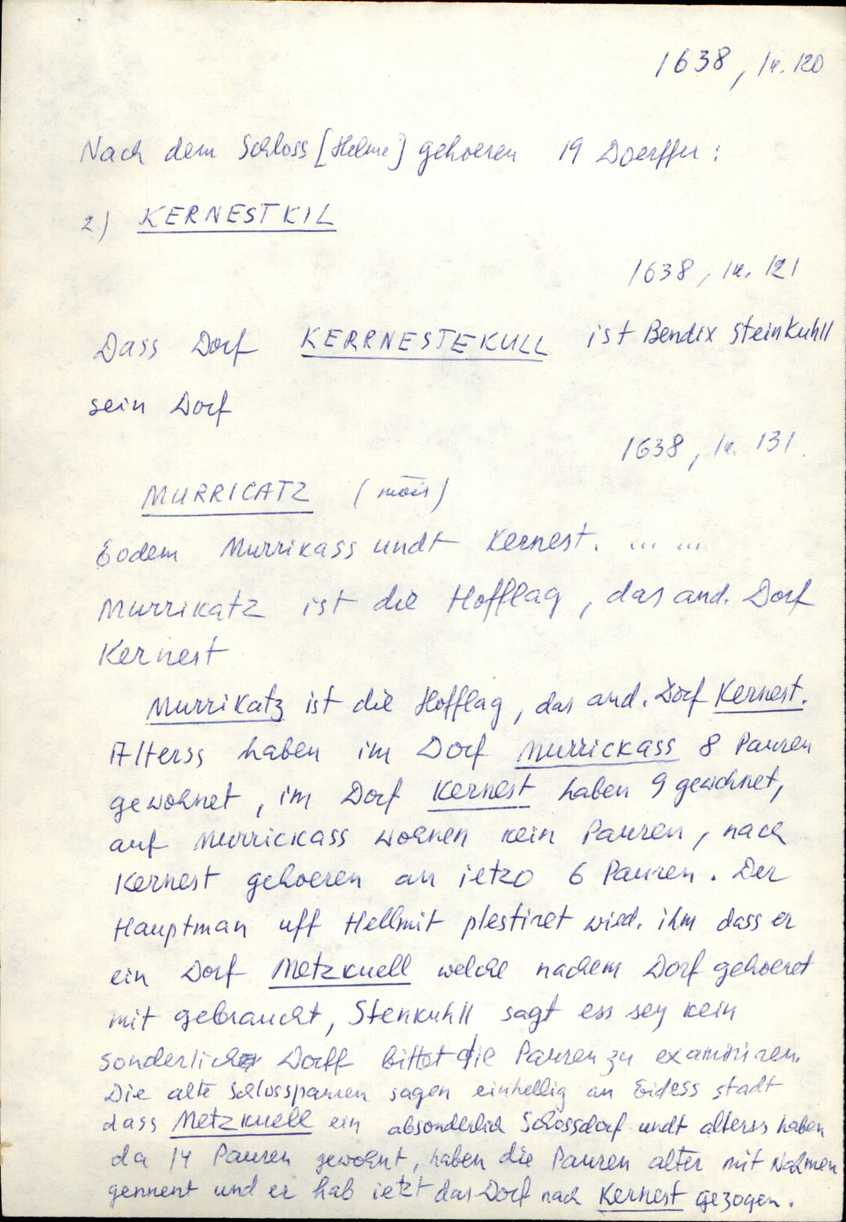 1638, lk. 120
Nach dem Schloss [Helme] gehoeren 19 Doerffer:
2) KERNESTKIL
1638, lk. 121
Dass Dorf KERRNESTEKULL ist Bendix Steinkuhll
sein Dorf
1638, lk. 131.
MURRICATZ (mõis)
Eodem Murrikass undt Kernest. ... ...
Murrikatz ist die Hofflag, das and. Dorf
Kernest
Murrikatz ist die Hofflag, das and. Dorf Kernest.
Alterss haben im Dorf Murrickass 8 Pauren
gewohnet, im Dorf Kernest haben 9 gewohnet,
auf Murrickass wohnen kein Pauren, nach
Kernest gehoeren an ietzo 6 Pauren. Der
Hauptman uff Hellmit plestiret wied. ihm dass er
ein Dorf Metzkuell welche nachem Dorf gehoeret
mit gebraucht, Stenkuhll sagt ess sey kein
sonderlich Dorff bittet die Pauren zu examiniren.
Die alte Schlosspauren sagen einhellig an Eidess stadt
dass Metzkuell ein absonderlich Schossdorf undt alterss haben
da 14 Pauren gewohnt, haben die Pauren alter mit Nahmen
gennent und er hab ietzt das Dorf nach Kernest gezogen.